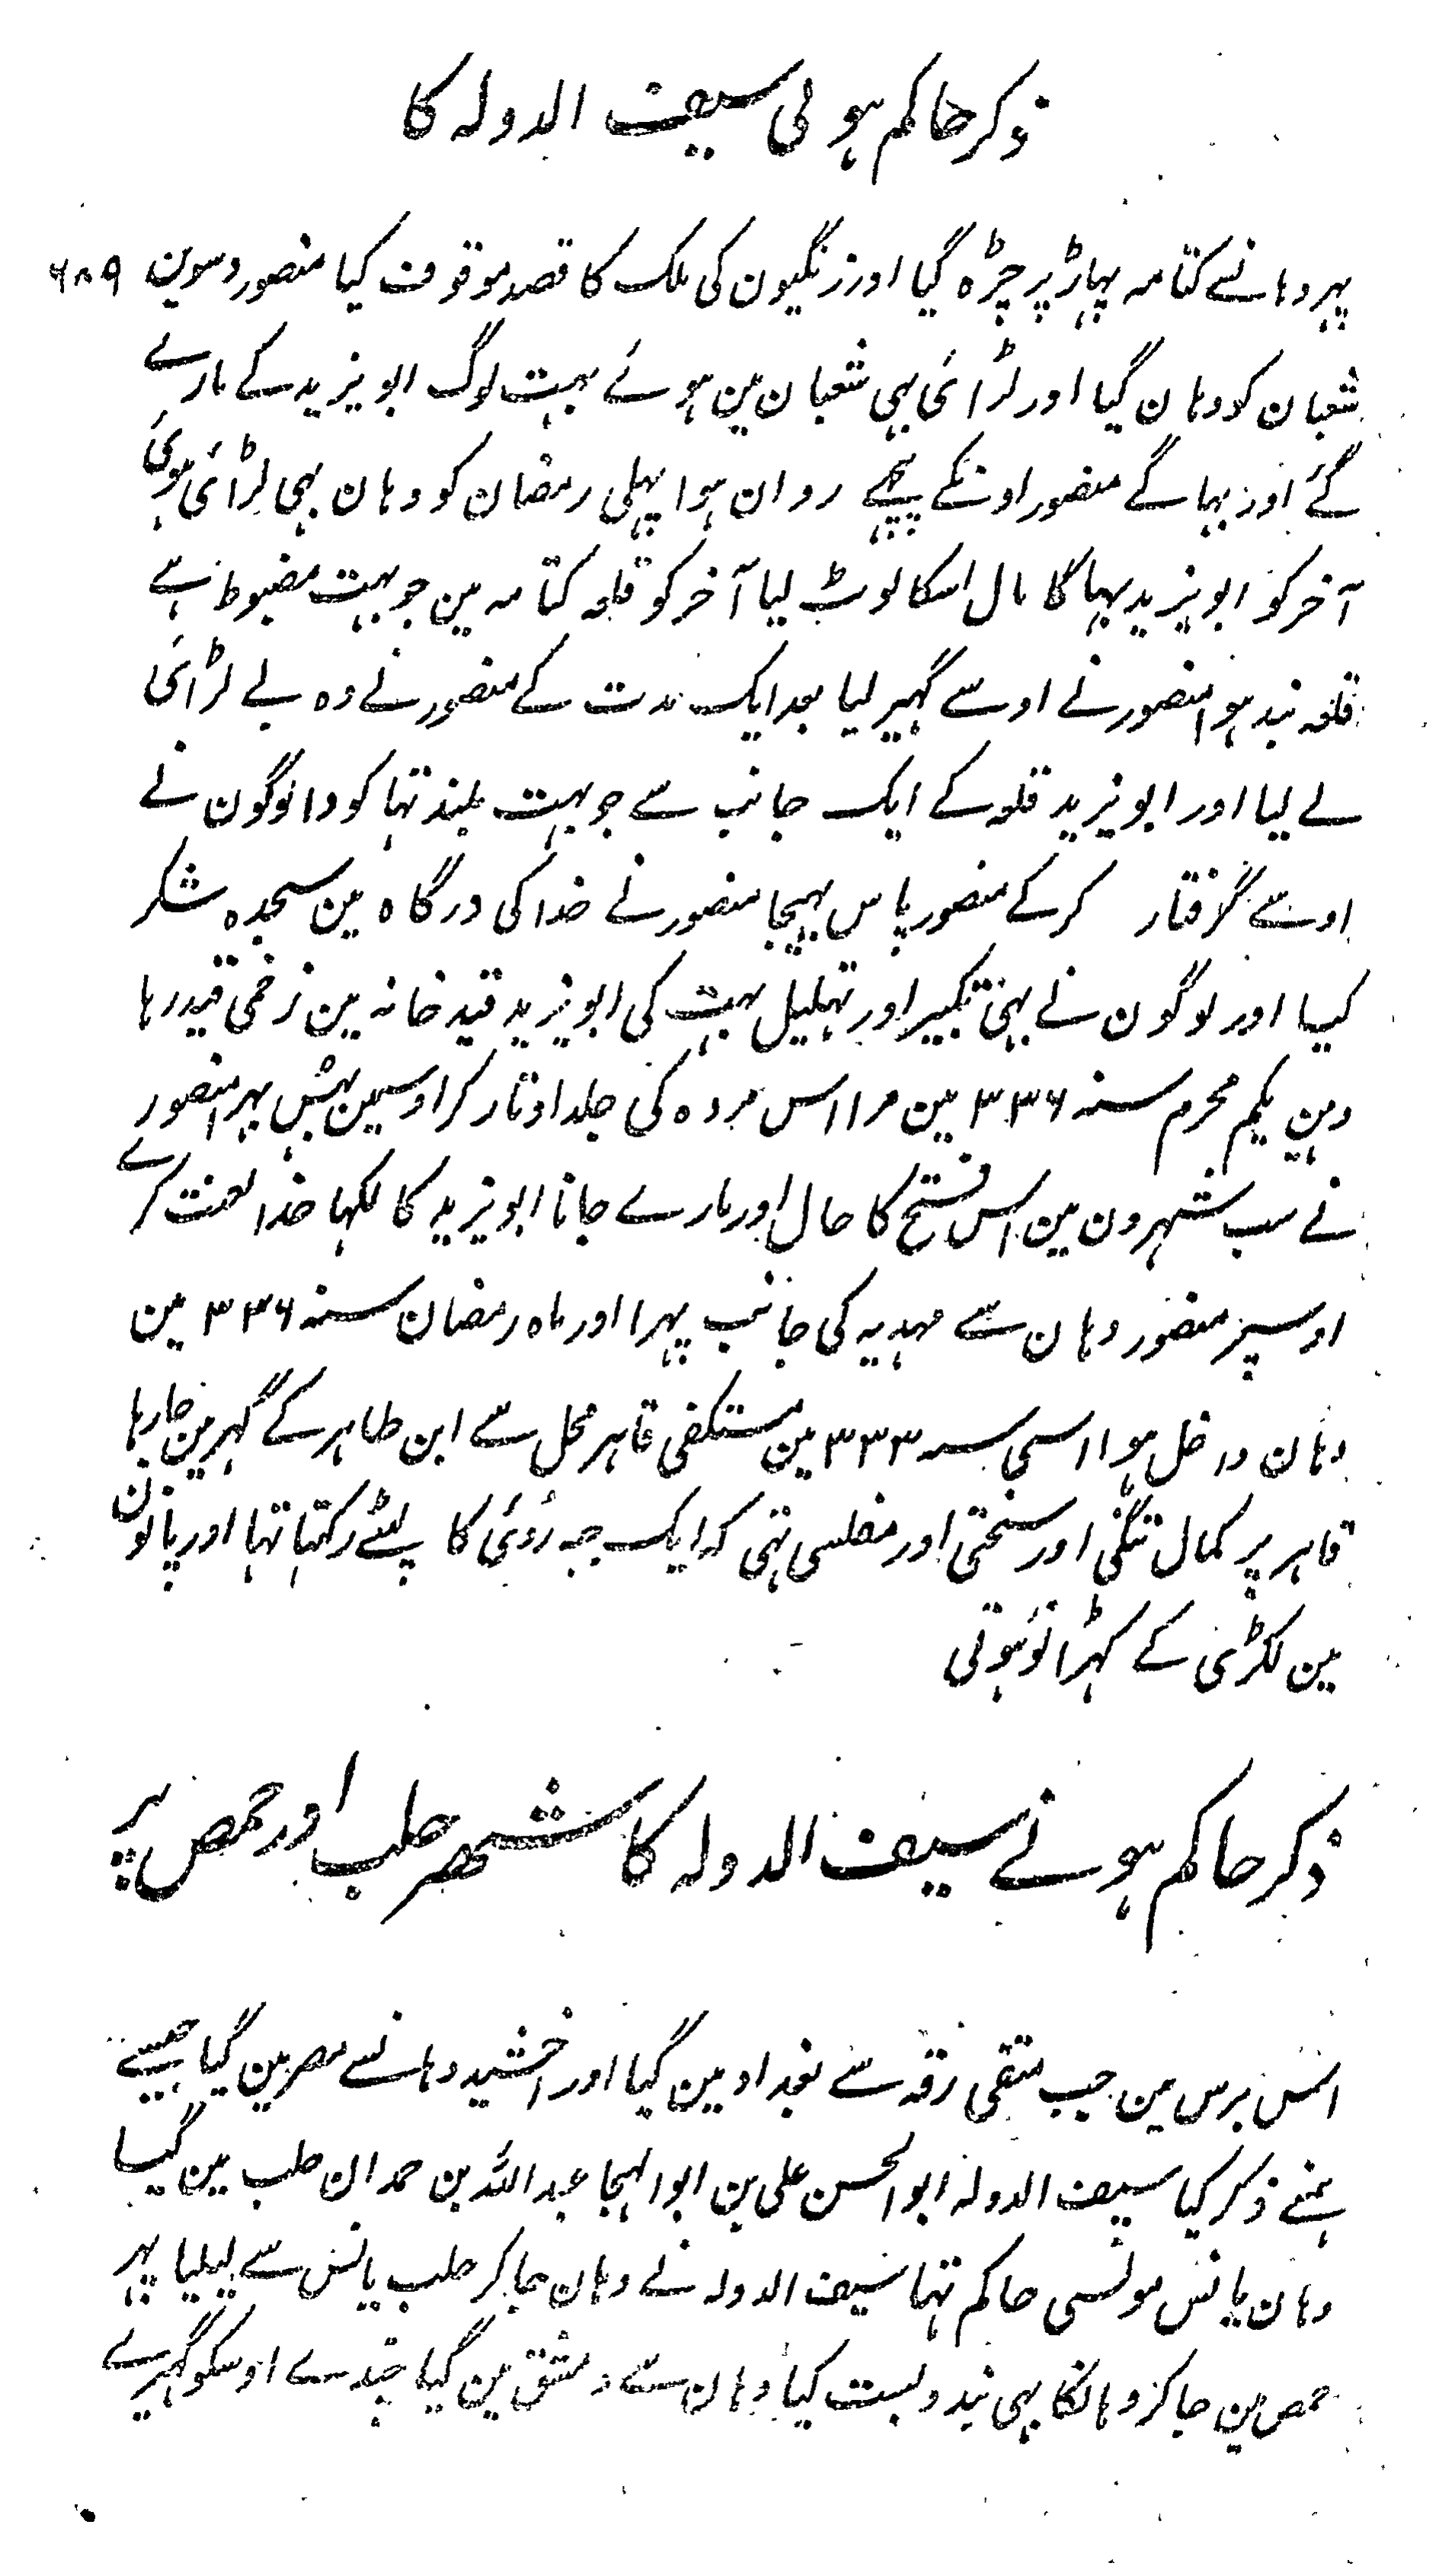 ذکر حاکم ہونی سیف الدولہ کا
پہر وہانسے کتامہ پہاڑ پر چڑہ گیا اور زنگیون کی ملک کا قصد موقوف کیا منصور دسوین ۶۸۹
شعبان کو وہان گیا اور لڑائی بہی شعبان مین ہوئے بہت لوگ ابو یزید کے مارے
گئے اور بہاگے منصور اونکے پیچے روان ہوا پہلی رمضان کو وہان بہی لڑائی ہوئی
آخر کو ابو یزید بہاگا مال اسکا لوٹ لیا آخر کو قلعہ کتامہ مین جو بہت مضبوط ہے
قلعہ بند ہوا منصور نے اوسے گہیر لیا بعد ایک مدت کے منصور نے وہ بے لڑائی
لے لیا اور ابو یزید قلعہ کے ایک جانب سے جو بہت بلند تہا کودا لوگون نے
اوسے گرفتار کر کے منصور پاس بہیجا منصور نے خدا کی درگاہ مین سجدہ شکر
کیا اور لوگون نے بہی تکبیر اور تہلیل بہت کی ابو یزید قید خانہ مین زخمی قید رہا
وہین یکم محرم سنہ ۳۳۶ مین مرا اس مردہ کی جلد اوتار کر اوسمین بہس بہرا منصور
نے سب شہرون مین اس فتح کا حال اور مارے جانا ابو یزید کا لکہا خدا لعنت کرے
اوسپر منصور وہان سے مہدیہ کی جانب پہرا اور ماہ رمضان سنہ ۳۳۶ مین
وہان داخل ہوا اسی سنہ ۳۳۳ مین مستکفی قاہر محل سے ابن طاہر کے گہر مین جا رہا
قاہر پر کمال تنگی اور سختی اور مفلسی تہی کہ ایک جبہ روئی کا پلٹے رکہتا تہا اور پانون
مین لکڑی کے کہڑانو ہوتی
ذکر حاکم ہونے سیف الدولہ کا شہر حلب اور حمص پر
اس برس مین جب متقی رقہ سے بغداد مین گیا اور اخشید وہانسے مصر مین گیا جیسے
ہمنے ذکر کیا سیف الدولہ ابو الحسن علی بن ابو الہیجا عبد اللہ بن حمدان حلب مین گیا
وہان یانس مونسی حاکم تہا سیف الدولہ نے وہان جا کر حلب یانس سے لیلیا پہر
حمص مین جا کر وہانکا بہی بندوبست کیا وہان سے دمشق مین گیا چندے اوسکو گہیرے